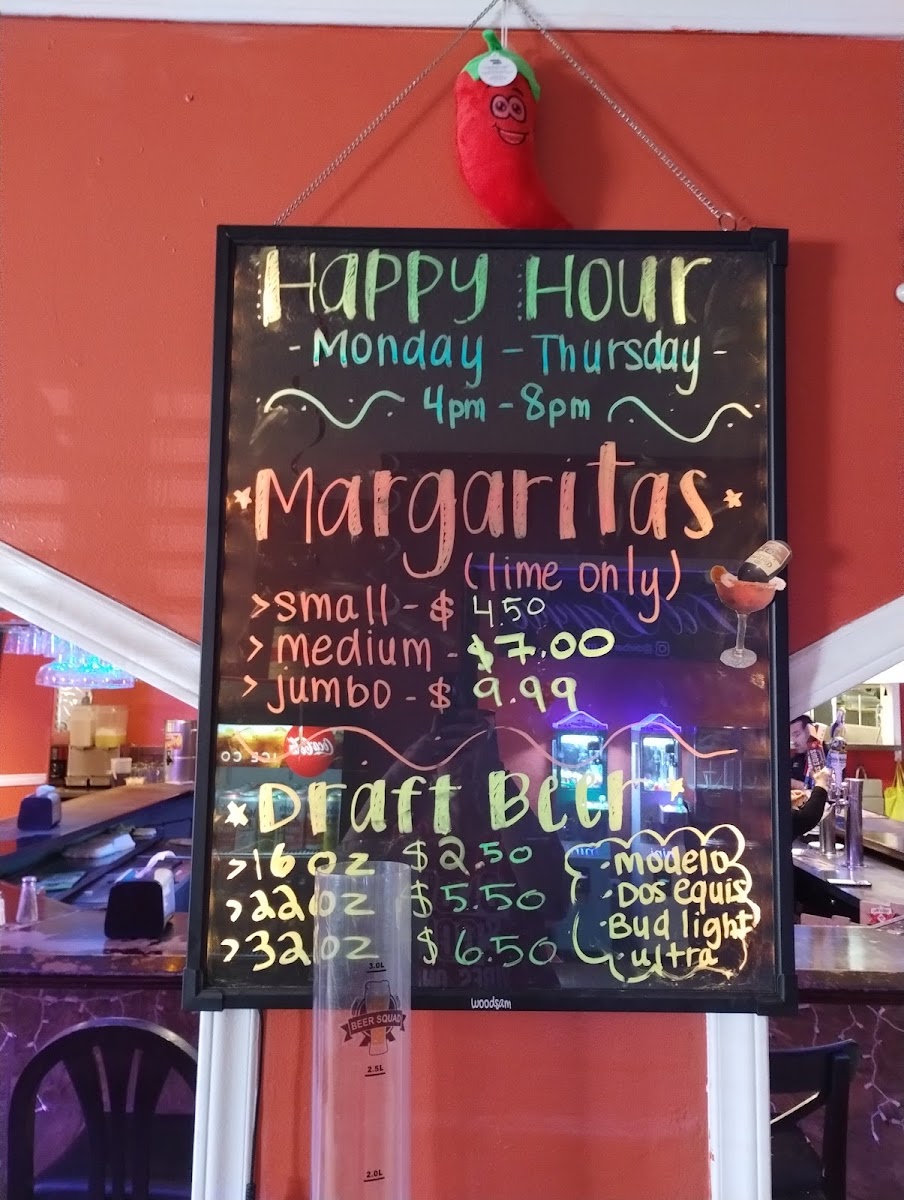 Happy Hour
- Monday - Thursday -
4pm - 8pm
Margaritas
(lime only)
> small - $ 4.50
> medium - $7.00
> jumbo - $ 9.99
Draft Beer
> 16 oz $2.50
> 22 oz $5.50
> 32 oz $6.50
· Modelo
· Dos equis
· Bud light
· ultra
woodsam
3.0L
BEER SQUAD
2.5L
2.0L